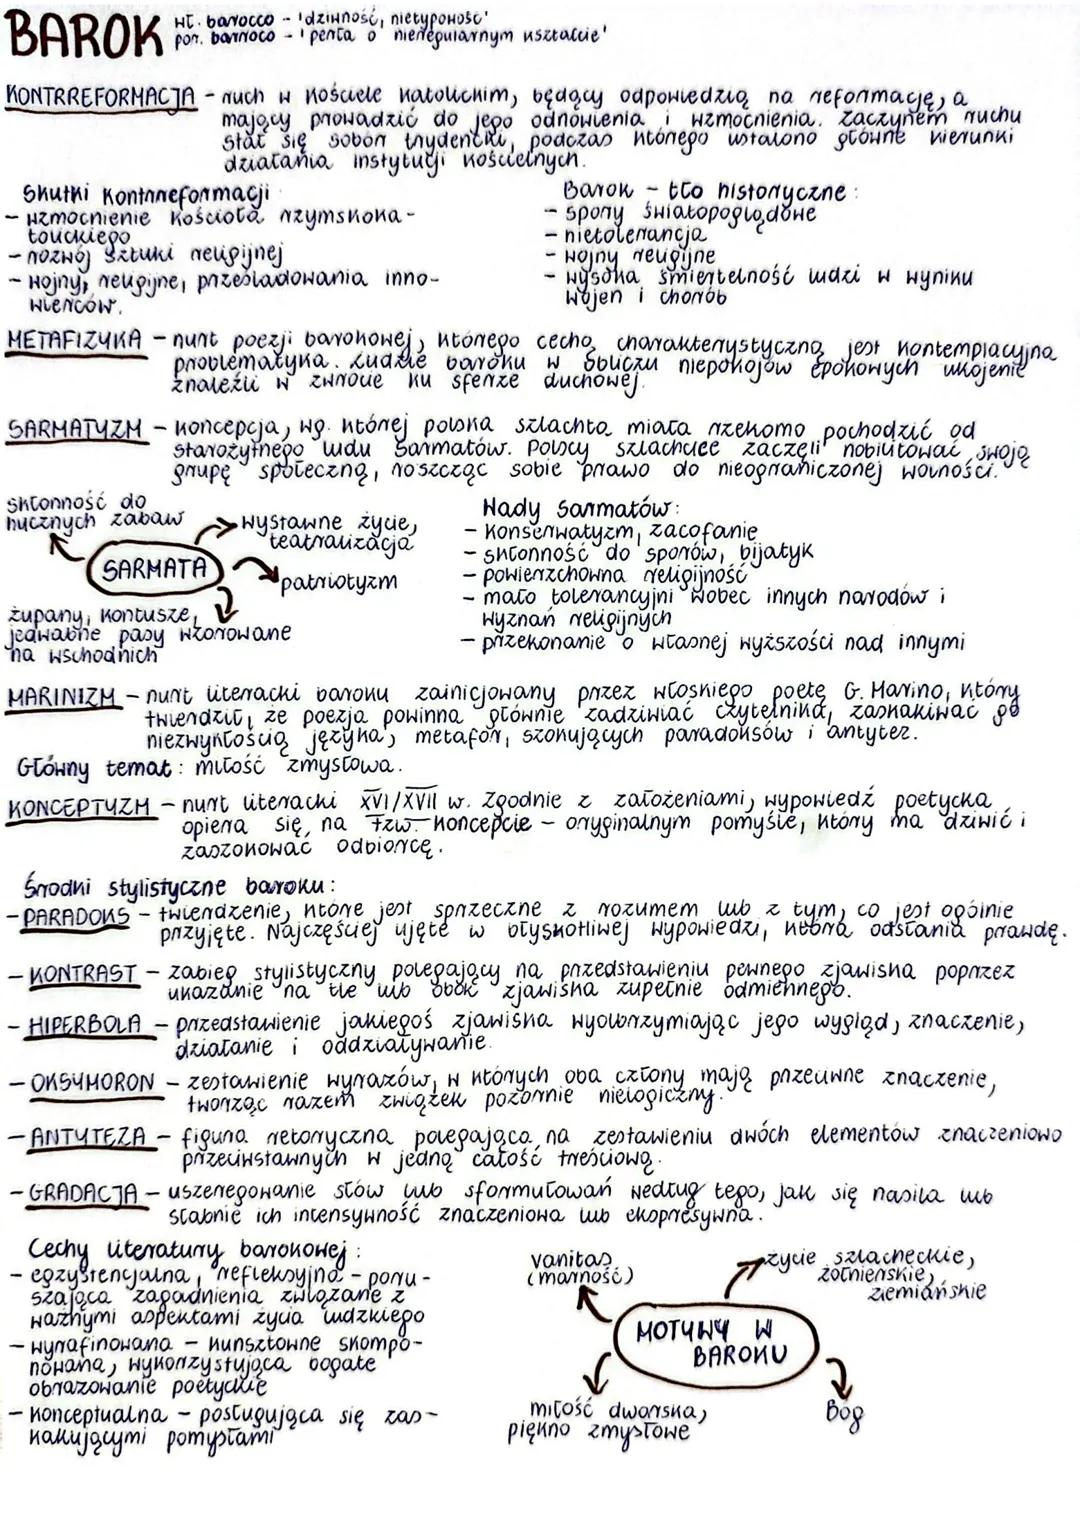 BAROK wł. barocco - 'dziwność, nietypowość'
por. barroco - 'perła o nieregularnym kształcie'
KONTRREFORMACJA - ruch w Kościele katolickim, będący odpowiedzią na reformację, a
mający prowadzić do jego odnowienia i wzmocnienia. Zaczynem ruchu
stał się sobór trydencki, podczas którego ustalono główne kierunki
działania instytucji kościelnych.
Skutki kontrreformacji
- wzmocnienie Kościoła rzymskoka-
tolickiego
- rozwój sztuki religijnej
- wojny, religijne, prześladowania inno-
wierców.
Barok - tło historyczne:
- spory światopoglądowe
- nietolerancja
- wojny religijne
- wysoka śmiertelność ludzi w wyniku
wojen i chorób
METAFIZYKA - nurt poezji barokowej, którego cechą charakterystyczną jest kontemplacyjna
problematyka. Ludzie baroku w obliczu niepokojów epokowych ukojenie
znaleźli w zwrocie ku sferze duchowej.
SARMATYZM - koncepcja, wg. której polska szlachta miała rzekomo pochodzić od
starożytnego ludu Sarmatów. Polscy szlachcice zaczęli nobilitować swoją
grupę społeczną, roszcząc sobie prawo do nieograniczonej wolności.
skłonność do
hucznych zabaw
wystawne życie,
teatralizacja
SARMATA
patriotyzm
żupany, kontusze,
jedwabne pasy wzorowane
na wschodnich
Wady Sarmatów:
- Konserwatyzm, zacofanie
- skłonność do sporów, bijatyk
- powierzchowna religijność
- mało tolerancyjni wobec innych narodów i
wyznań religijnych
- przekonanie o własnej wyższości nad innymi
MARINIZM - nurt literacki baroku zainicjowany przez włoskiego poetę G. Marino, który
twierdził, że poezja powinna głównie zadziwiać czytelnika, zaskakiwać go
niezwykłością języka, metafor, szokujących paradoksów i antytez.
Główny temat: miłość zmysłowa.
KONCEPTYZM - nurt literacki XVI/XVII w. Zgodnie z założeniami, wypowiedź poetycka
opiera się na tzw. koncepcie - oryginalnym pomyśle, który ma dziwić i
zaszokować odbiorcę.
Środki stylistyczne baroku:
- PARADOKS - twierdzenie, które jest sprzeczne z rozumem lub z tym, co jest ogólnie
przyjęte. Najczęściej ujęte w błyskotliwej wypowiedzi, która odsłania prawdę.
- KONTRAST - zabieg stylistyczny polegający na przedstawieniu pewnego zjawiska poprzez
ukazanie na tle lub obok zjawiska zupełnie odmiennego.
- HIPERBOLA - przedstawienie jakiegoś zjawiska wyolbrzymiając jego wygląd, znaczenie,
działanie i oddziaływanie.
- OKSYMORON - zestawienie wyrazów, w których oba człony mają przeciwne znaczenie,
tworząc razem związek pozornie nielogiczny.
- ANTYTEZA - figura retoryczna polegająca na zestawieniu dwóch elementów znaczeniowo
przeciwstawnych w jedną całość treściową.
- GRADACJA - uszeregowanie słów lub sformułowań według tego, jak się nasila lub
słabnie ich intensywność znaczeniowa lub ekspresywna.
Cechy literatury barokowej:
- egzystencjalna, refleksyjna - poru-
szająca zagadnienia związane z
ważnymi aspektami życia ludzkiego
- wyrafinowana - kunsztowne skompo-
nowana, wykorzystująca bogate
obrazowanie poetyckie
- konceptualna - posługująca się zas-
kakującymi pomysłami
vanitas
(marność)
życie szlacheckie,
żołnierskie,
ziemiańskie
MOTYWY W
BAROKU
miłość dworska,
piękno zmysłowe
Bóg